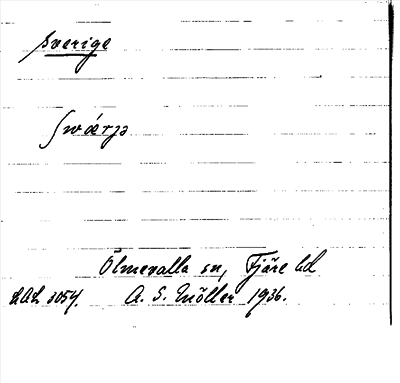 Sverige
Swárjə
Ölmevalla sn, Fjäre hd
LAL 3054. A. S. Möller 1936.